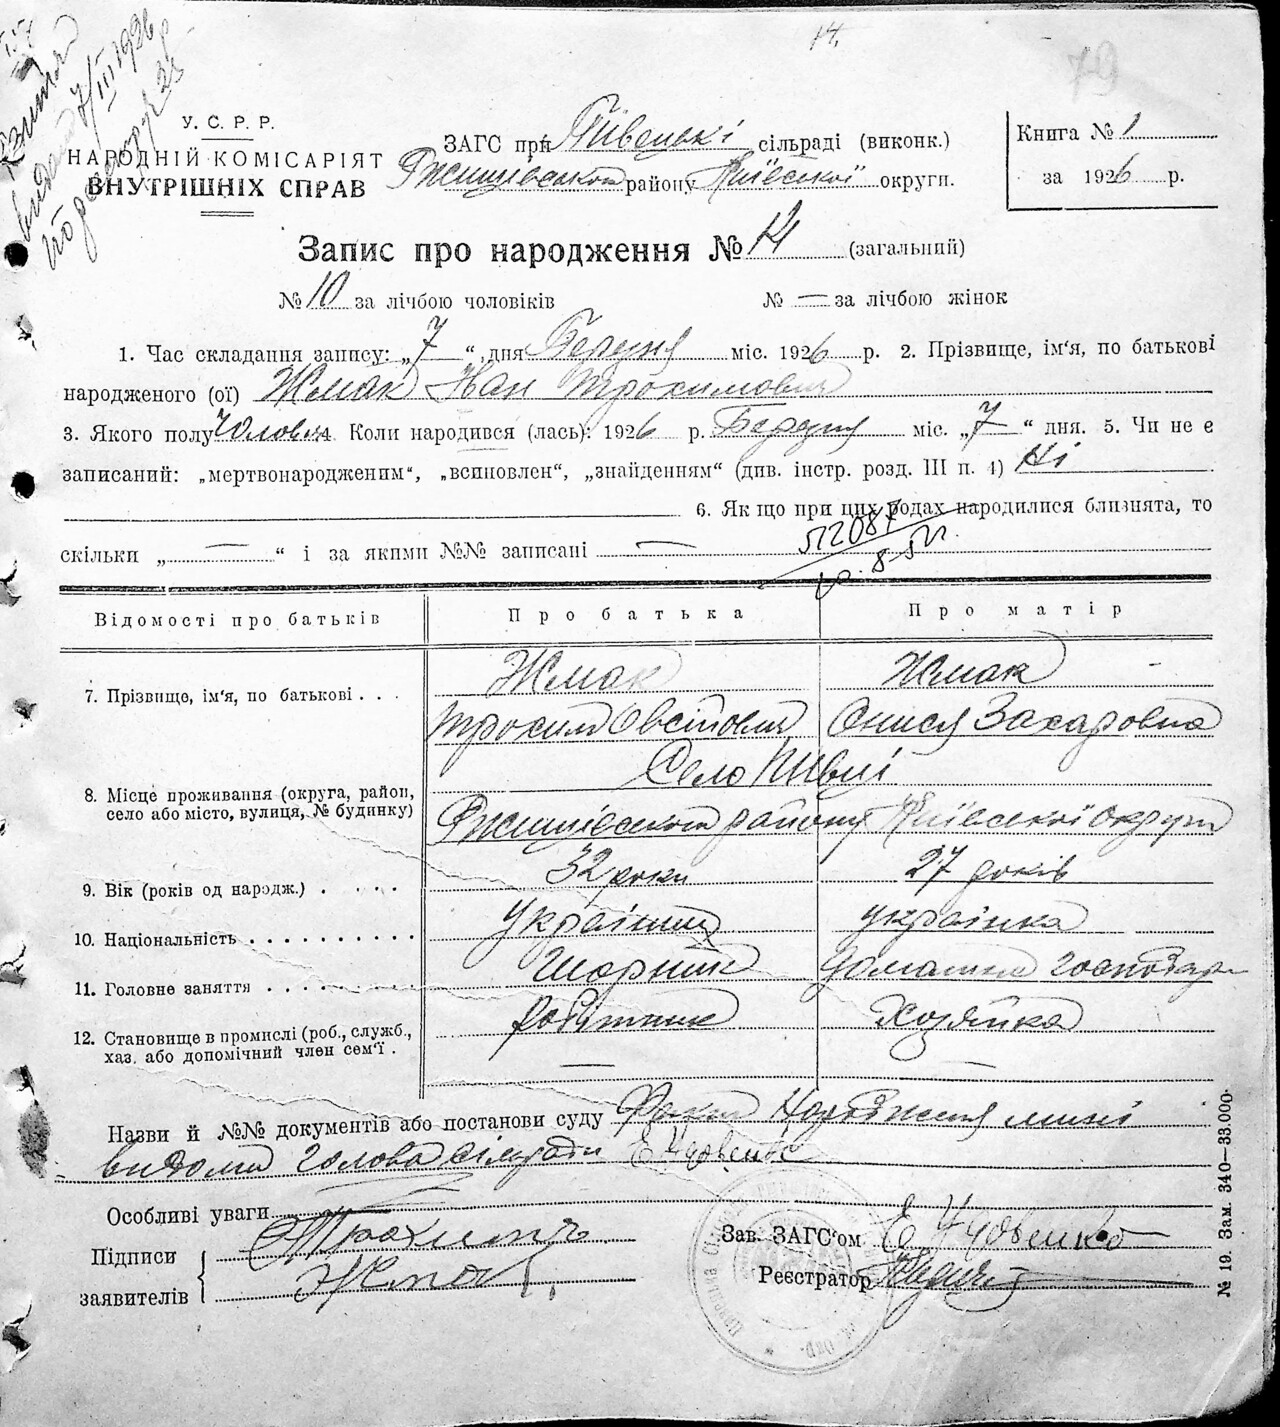 14.
79
видано 7/III 1926
У. С. Р. Р.
НАРОДНІЙ КОМІСАРІЯТ
ВНУТРІШНІХ СПРАВ
ЗАГС при Півецькі сільраді (виконк.)
Ржищівського району Київської округи.
Книга № 1
за 1926 р.
Запис про народження № 14 (загальний)
№ 10 за лічбою чоловіків № — за лічбою жінок
1. Час складання запису: „7“ дня Березня міс. 1926 р. 2. Прізвище, ім'я, по батькові
народженого (ої) Жмак Іван Трохимович
3. Якого полу Чолов. 4. Коли народився (лась): 1926 р. Березня міс. „7“ дня. 5. Чи не є
записаний: „мертвонародженим“, „всиновлен“, „знайденням“ (див. інстр. розд. III п. 4) Ні
6. Якщо при цих родах народилися близнята, то
скільки „ — “ і за якими №№ записані —
Відомості про батьків Про батька Про матір
7. Прізвище, ім'я, по батькові . . . Жмак Жмак
Трохим Овсійович Онися Захаровна
Село Півці
8. Місце проживання (округа, район,
село або місто, вулиця, № будинку) Ржищівського району Київської Округи
9. Вік (років од народж.) . . . . 32 роки 27 років
10. Національність . . . . . . . . . . Українець українка
11. Головне заняття . . . . . . . . . Шорник домашня господар
12. Становище в промислі (роб., служб.,
хаз. або допомічний член сем'ї . робітник Хозяйка
Назви й №№ документів або постанови суду Факт народження мині
видомий голова сільради Є Чудвенко
Особливі уваги
Підписи
заявителів
Трохим
Жмак
Зав. ЗАГС'ом Є Чудвенко
Реєстратор
№ 19. Зам. 340—33.000.